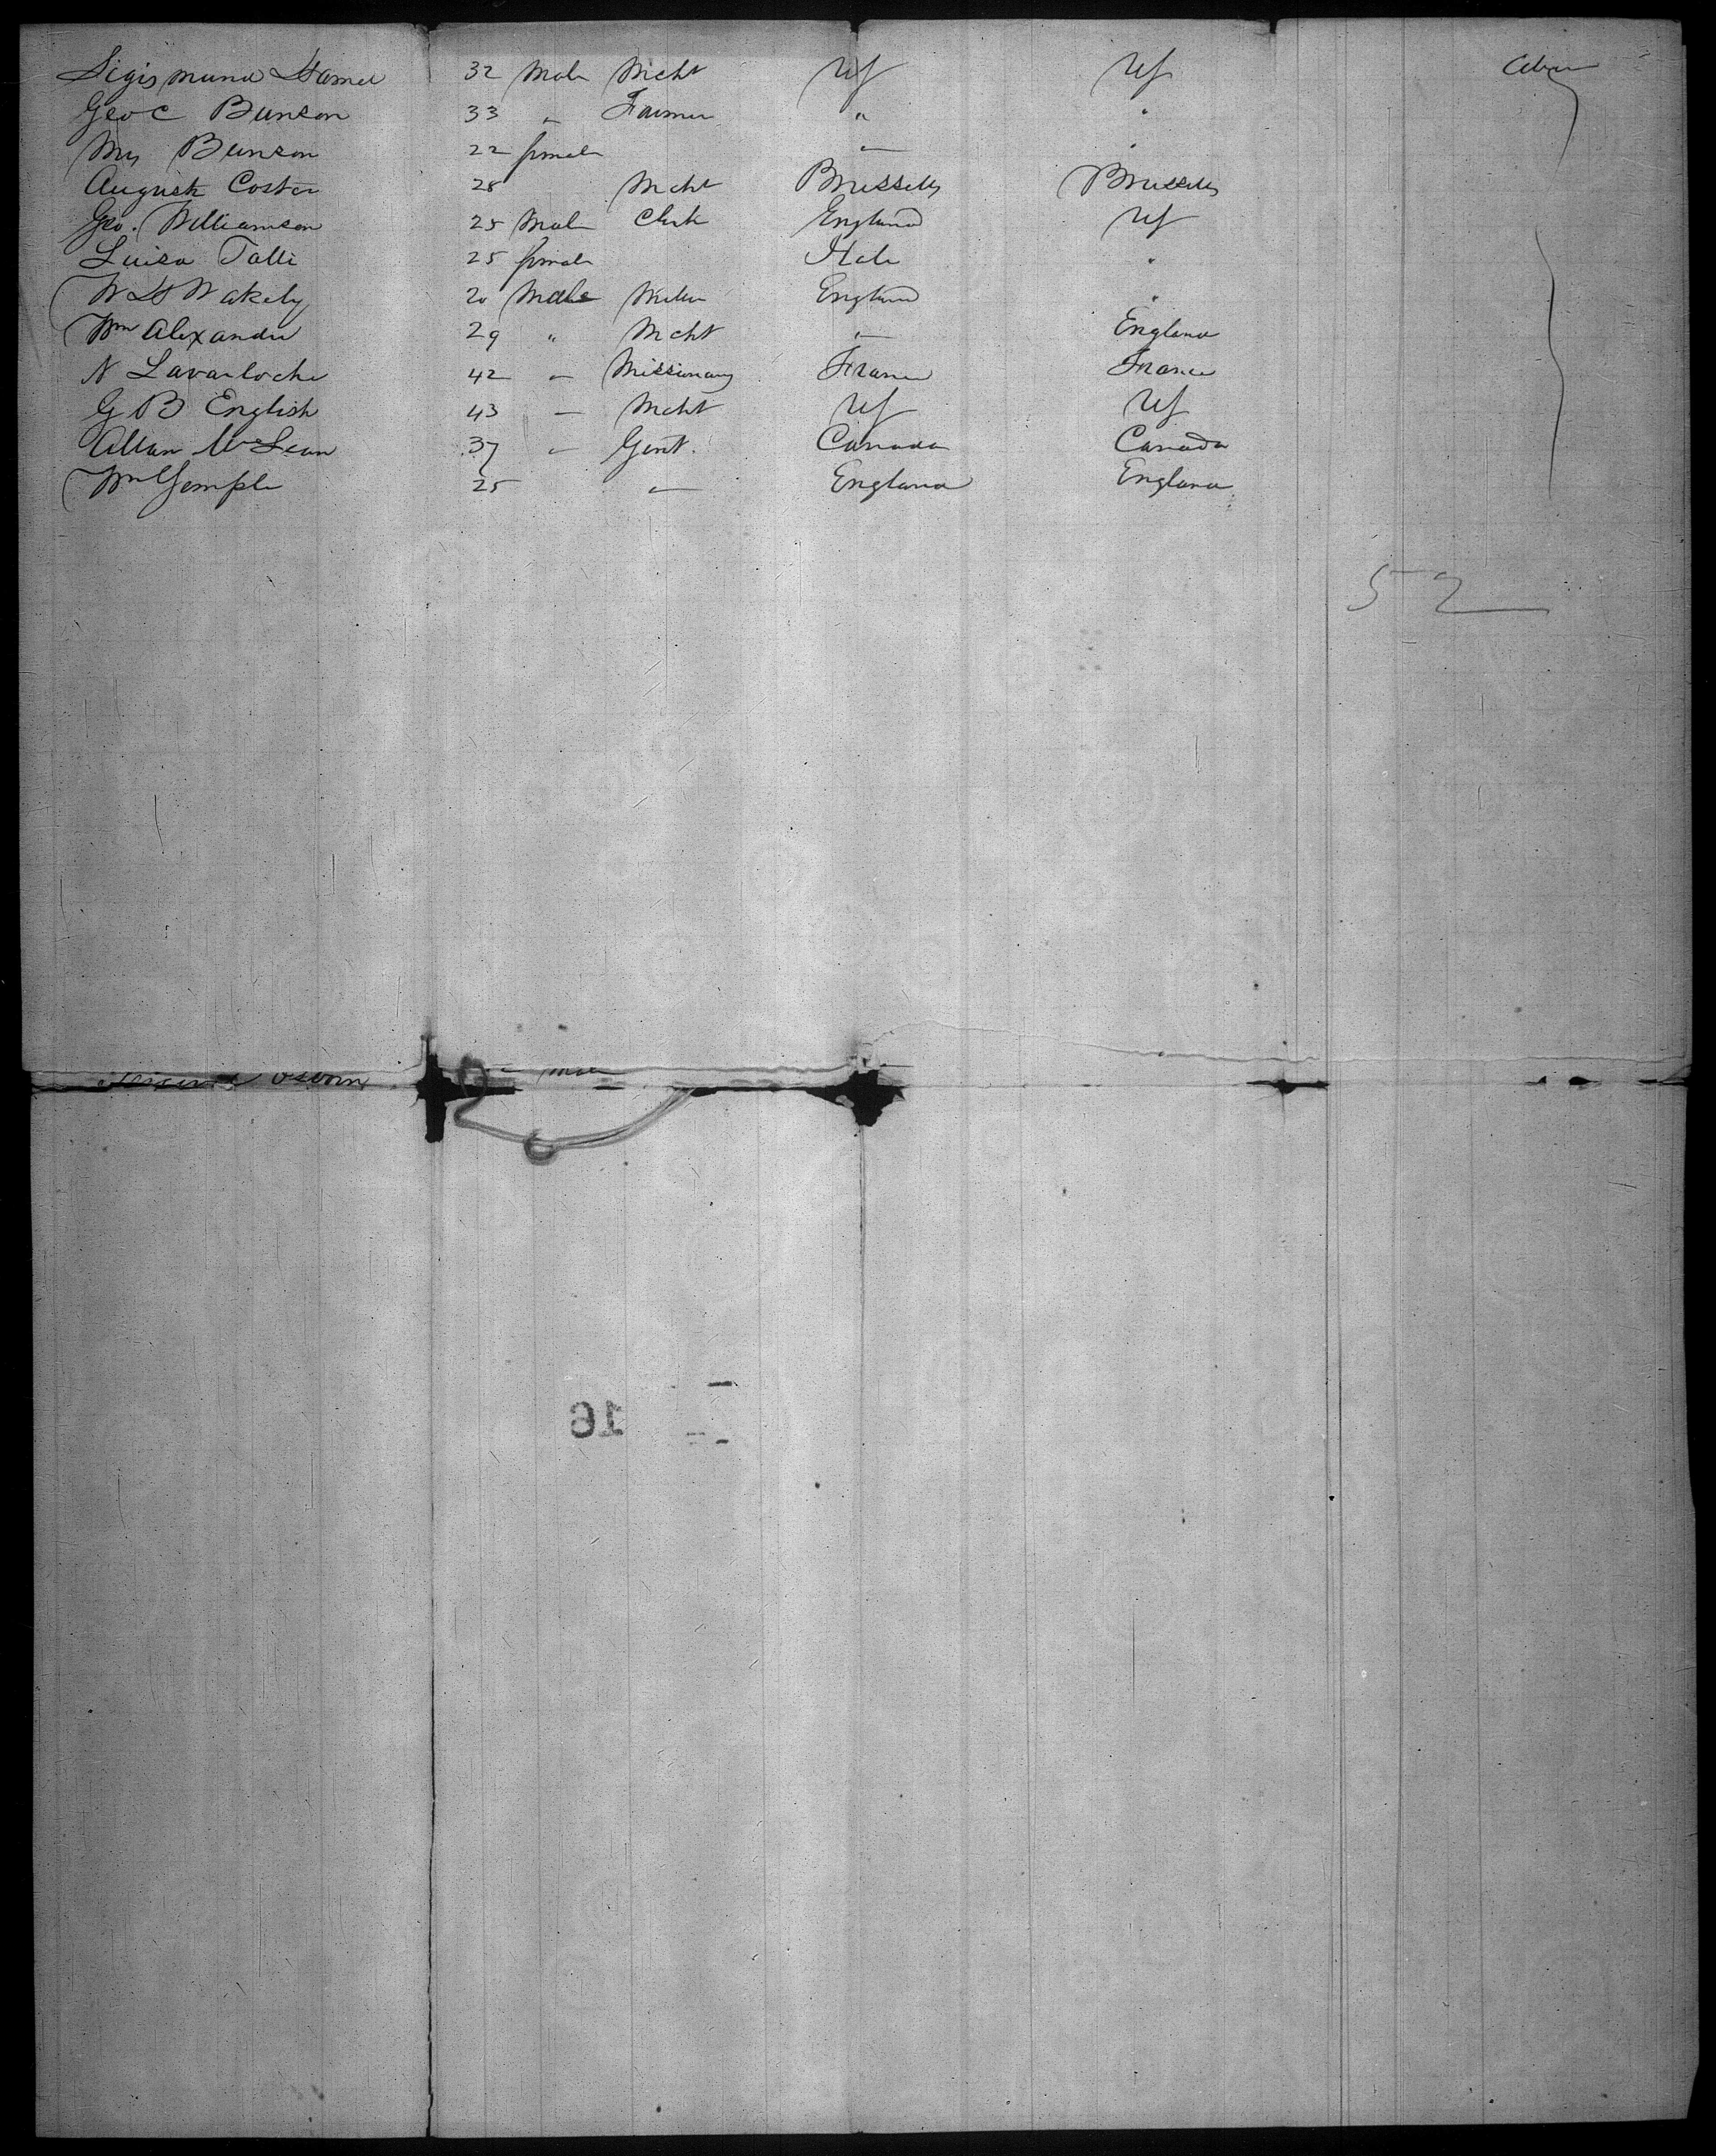 Sigismund Hamel 32 Male Mcht US US Cabin
Geo C Bunson 33 " Farmer " "
Mrs Bunson 22 female " "
August Coster 28 Mcht Brussells Brussells
Geo. Williamson 25 Male Clerk England US
Luisa Talli 25 female Itale "
W H Wakely 20 Male England "
Wm Alexander 29 " Mcht " England
N Lavarloche 42 " Missionary France France
G B English 43 " Mcht US US
Allan McLean 37 " Gent. Canada Canada
Wm Semple 25 " England England
52
Osborn Male
16